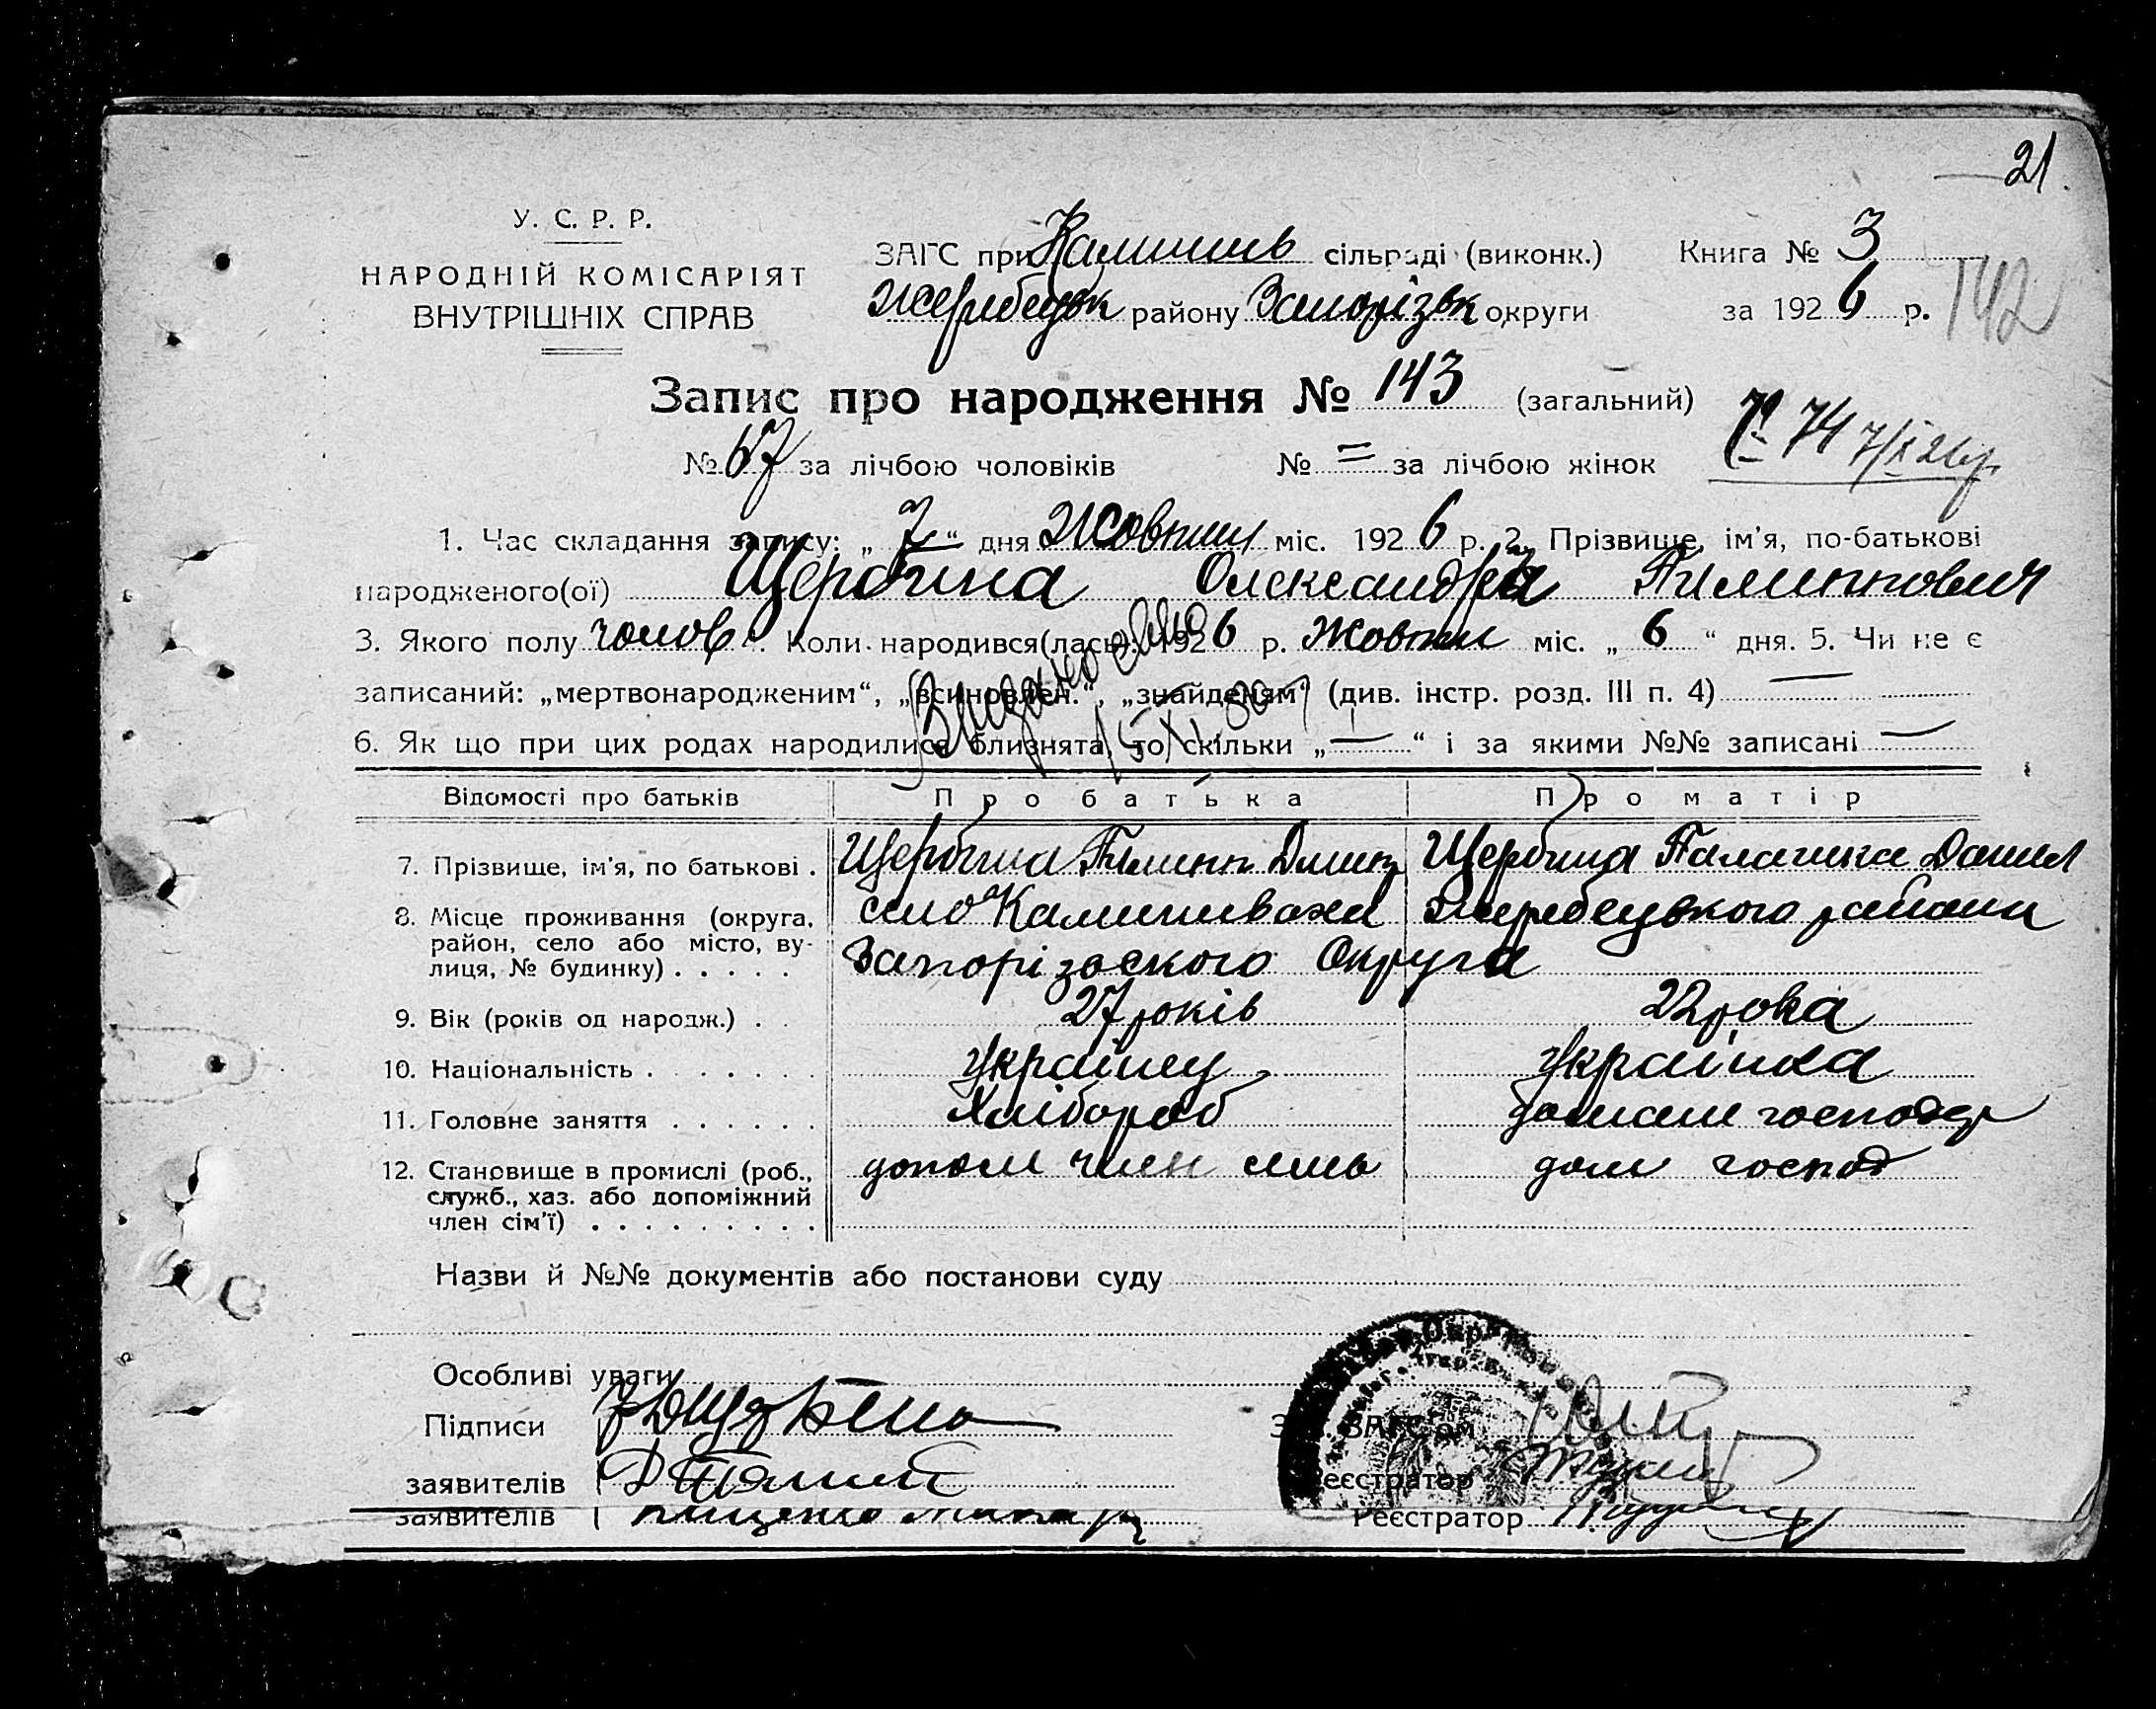 21.
У. С. Р. Р.
НАРОДНІЙ КОМІСАРІЯТ
ВНУТРІШНІХ СПРАВ
ЗАГС при Камишев сільраді (виконк.)
Жеребецьк району Запорізьк округи
Книга № 3
за 1926 р.
142
Запис про народження № 143 (загальний)
№ 67 за лічбою чоловіків № = за лічбою жінок
№ 74 7/X 26 р.
1. Час складання запису: „ 7 “ дня Жовтня міс. 1926 р. 2. Прізвище, ім'я, по-батькові
народженого(ої) Щербина Олександра Пилиппович
3. Якого полу чолов Коли народився(лась): 1926 р. Жовтня міс. „ 6 “ дня. 5. Чи не є
записаний: „мертвонародженим“, „всиновлен.“, „знайденям“ (див. інстр. розд. III п. 4) —
6. Як що при цих родах народилися близнята, то скільки „ — “ і за якими №№ записані —
Відомості про батьків Про батька Про матір
7. Прізвище, ім'я, по батькові . Щербина Пилипп Щербина Палагика Данил
8. Місце проживання (округа, район, село або місто, вулиця, № будинку) . . . . . село Жеребецького району
Запорізського Округа
9. Вік (років од народж.) . . 27 років 22 рока
10. Національність . . . . . . . українец українка
11. Головне заняття . . . . . . Хлібороб домаш господр
12. Становище в промислі (роб., служб., хаз. або допоміжний член сім'ї) . . . . . . . . . допом член семь дом господ
Назви й №№ документів або постанови суду
Особливі уваги
Підписи
Зав. ЗАГС'ом
заявителів
Реєстратор
заявителів
Реєстратор